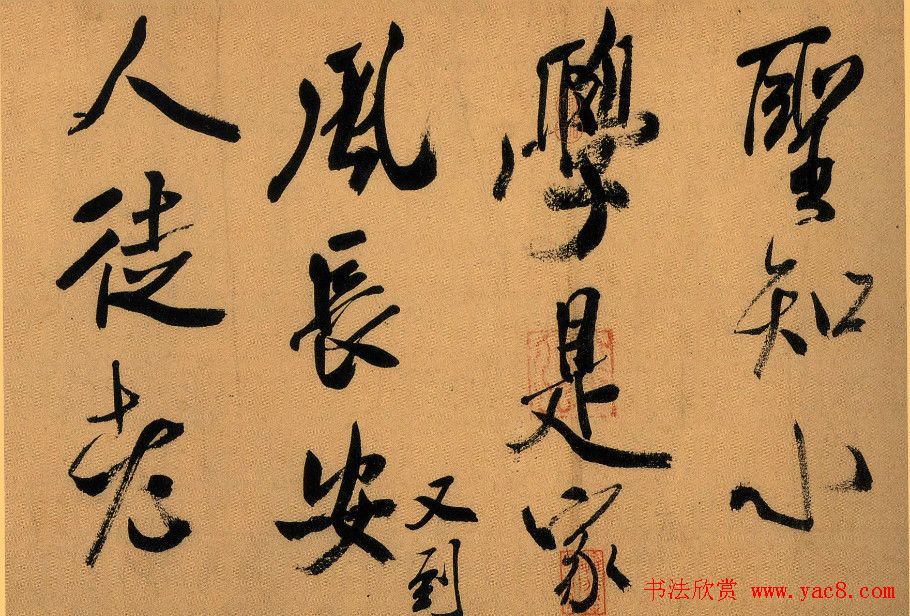 聖知小
學是家
風長安
又到
人徒老
书法欣赏 www.yac8.com